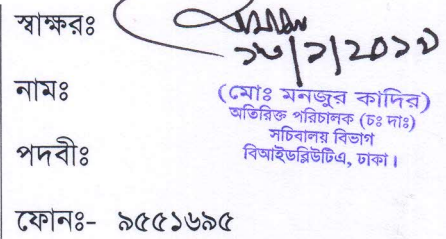 স্বাক্ষরঃ
নামঃ
(মোঃ মনজুর কাদির)
অতিরিক্ত পরিচালক (চঃ দাঃ)
সচিবালয় বিভাগ
পদবীঃ
বিআইডব্লিউটিএ, ঢাকা।
ফোনঃ- ৯৫৫১৬৯৫